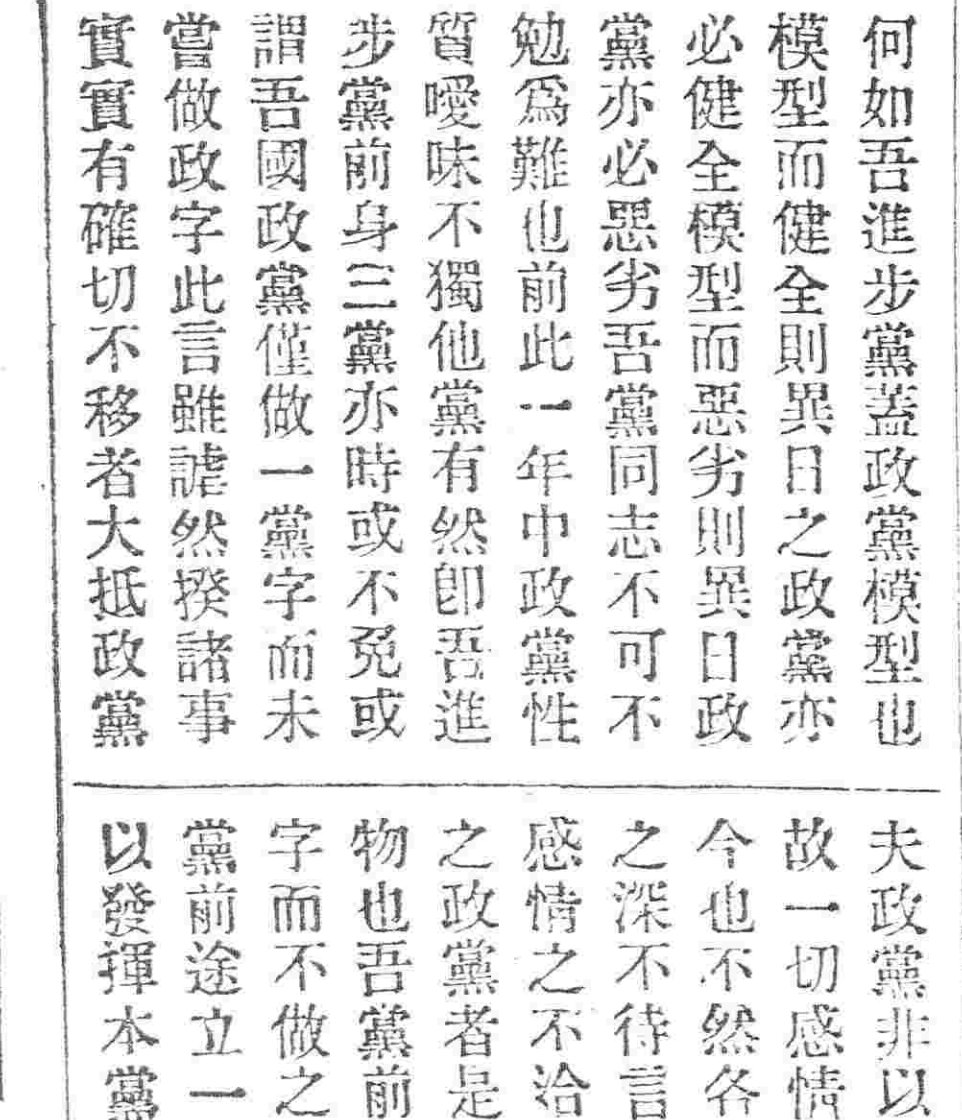 何如吾進步黨蓋政黨模型也
模型而健全則異日之政黨亦
必健全模型而惡劣則異日政
黨亦必惡劣吾黨同志不可不
勉爲難也前此一年中政黨性
質曖昧不獨他黨有然卽吾進
步黨前身三黨亦時或不免或
謂吾國政黨僅做一黨字而未
嘗做政字此言雖謔然揆諸事
實實有確切不移者大抵政黨
夫政黨非以
故一切感情
今也不然各
之深不待言
感情之不洽
之政黨者是
物也吾黨前
字而不做之
黨前途立一
以發揮本黨